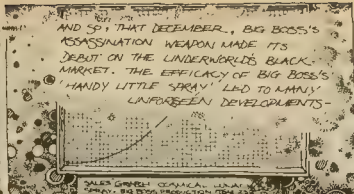 AND SO, THAT DECEMBER, BIG BOSS'S
ASSASSINATION WEAPON MADE ITS
DEBUT ON THE UNDERWORLD'S BLACK
MARKET. THE EFFICACY OF BIG BOSS'S
'HANDY LITTLE SPRAY' LED TO MANY
UNFORSEEN DEVELOPMENTS-
SALES GRAPH
SPRAY: BIG BOSS PRODUCTION ITEM